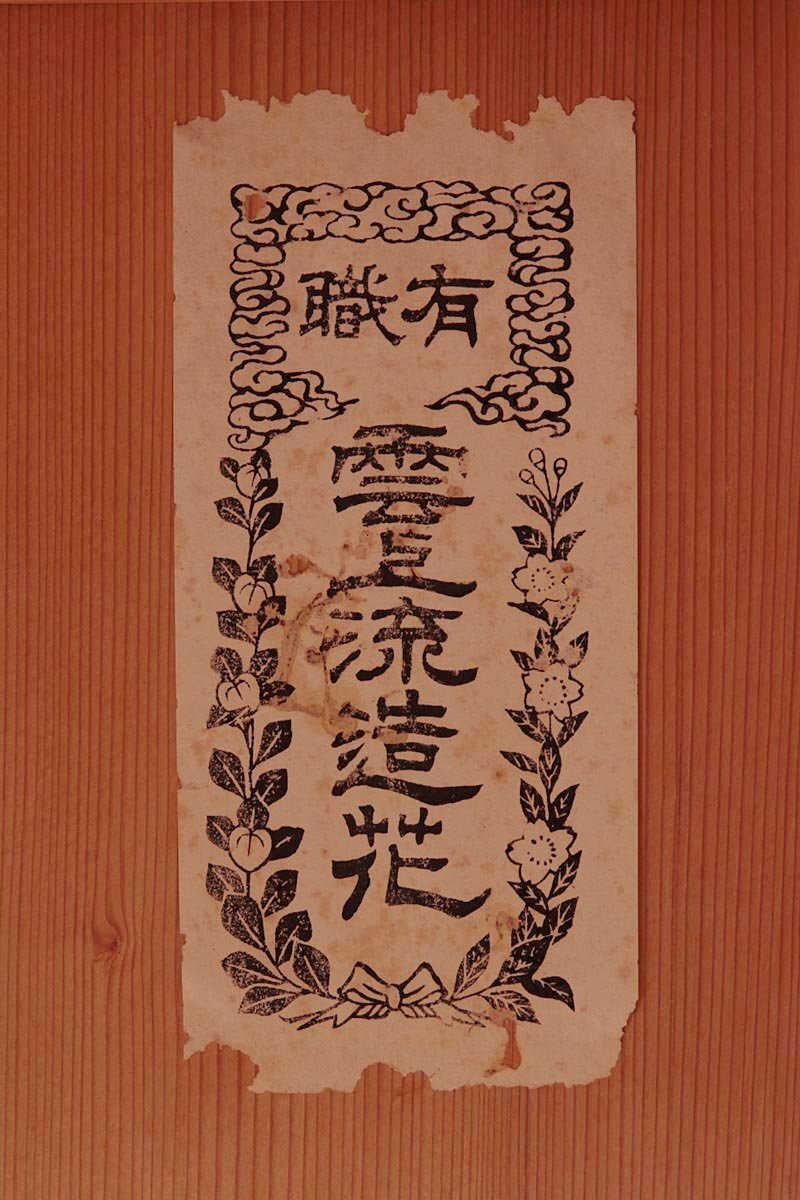 有職
雲上流造花